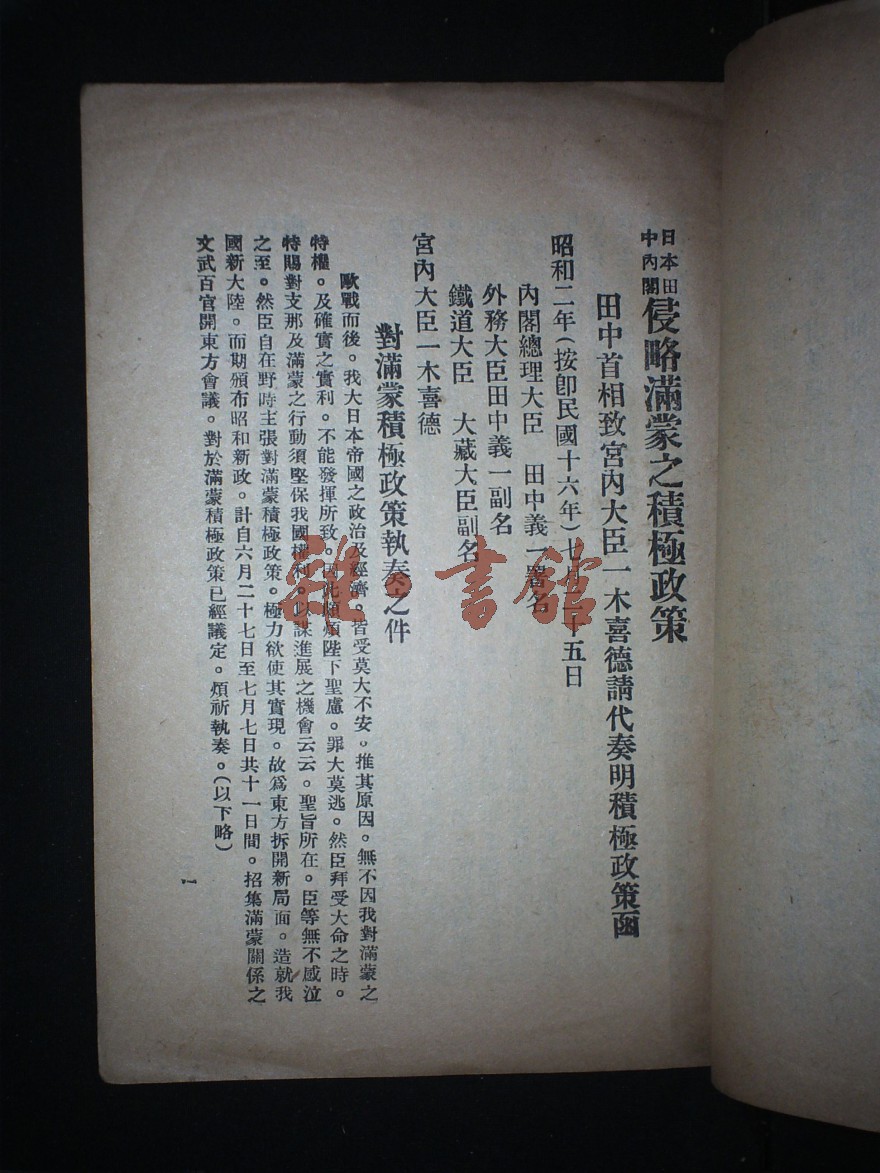 日本田中內閣侵略滿蒙之積極政策
田中首相致宮內大臣一木喜德請代奏明積極政策函
昭和二年(按卽民國十六年)七月二十五日
內閣總理大臣 田中義一署名
外務大臣田中義一副名
鐵道大臣 大藏大臣副名
宮內大臣一木喜德
對滿蒙積極政策執奏之件
歐戰而後。我大日本帝國之政治及經濟。皆受莫大不安。推其原因。無不因我對滿蒙之
特權。及確實之實利。不能發揮所致。因此頗煩陛下聖慮。罪大莫逃。然臣拜受大命之時。
特賜對支那及滿蒙之行動須堅保我國權利。以謀進展之機會云云。聖旨所在。臣等無不感泣
之至。然臣自在野時主張對滿蒙積極政策。極力欲使其實現。故爲東方拆開新局面。造就我
國新大陸。而期頒布昭和新政。計自六月二十七日至七月七日共十一日間。招集滿蒙關係之
文武百官開東方會議。對於滿蒙積極政策已經議定。煩祈執奏。(以下略)
一
雜·書館